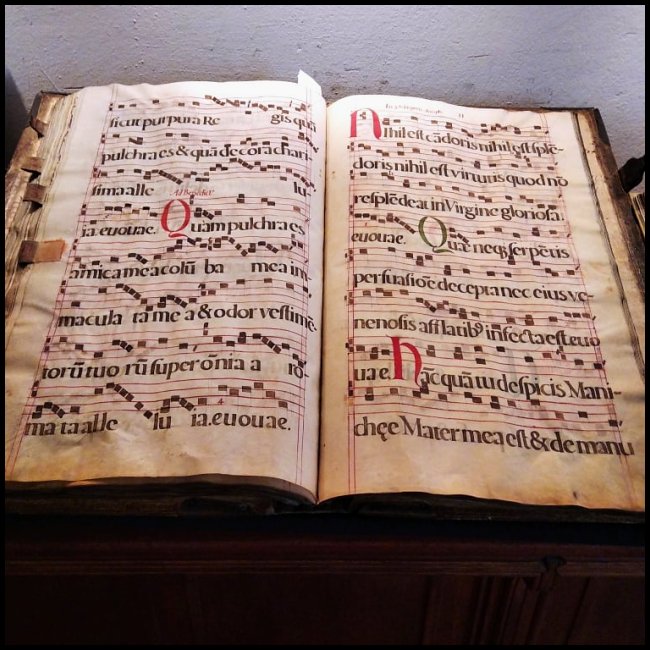 sicut purpura Re gis quã
pulchra es & quã decora chari
sima alle lu
Ad Benedict⁹
ia. euouae. Quam pulchra es
amica mea colũ ba mea im
macula ta me a & odor vestimẽ-
torũ tuo rũ super õnia a ro-
mata alle lu ia. euouae.
Nihil est cãdoris nihil est splẽ-
doris nihil est virtutis quod nõ
resplẽdeat in Virgine gloriosa.
euouae. Quae neq₃ serpẽtis
persuasiõe decepta nec eius ve-
nenosis afflatib⁹ infecta est. euo
uae. hãc quã tu despicis Mani-
chęe Mater mea est & de manu